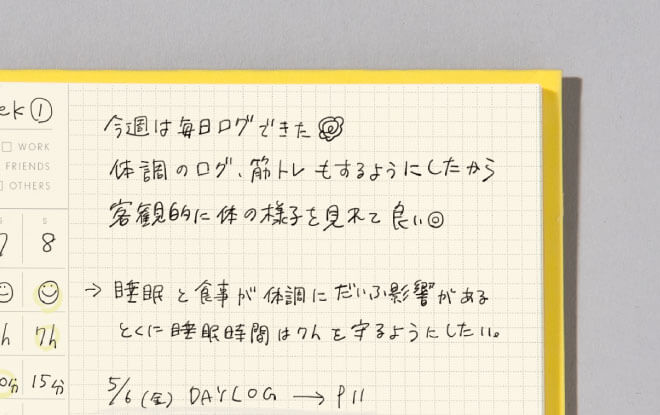 ek ①
今週は毎日ログできた
WORK
体調のログ、筋トレもするようにしたから
FRIENDS
OTHERS
客観的に体の様子を見れて良い◎
S S
8
→ 睡眠と食事が体調にだいぶ影響がある
h 7h
とくに睡眠時間は7hを守るようにしたい。
0分 15分
5/6(金) DAYLOG → P11